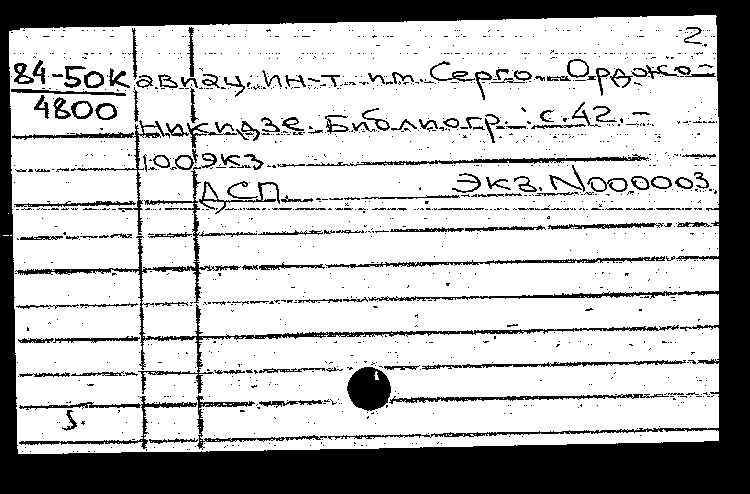 2
84-50К авиац. ин-т им. Серго Орджо-
4800 никидзе. Библиогр.: с.42. -
100экз.
ДСП. Экз. N000003